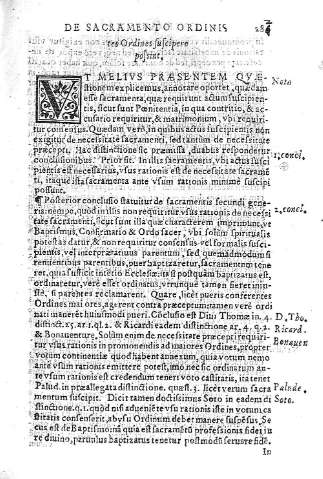 DE SACRAMENTO ORDINIS
tes Ordines suscipere
possint.
VT MELIVS PRÆSENTEM QVÆ- Nota
stionem explicemus, annotare oportet, quædam
esse sacramenta, quæ requirunt actum suscipien-
tis, sicut sunt Pœnitentia, in qua contritio, & ac-
cusatio requiritur, & matrimonium, vbi requiri-
tur consensus. Quædam verò, in quibus actus suscipientis non
exigitur de necessitate sacramenti, sed tantum de necessitate
præcepti. Hac distinctione sic præmissa, duabus respondetur
conclusionibus. Prior sit. In illis sacramentis, vbi actus susci 1. concl.
pientis est necessarius, vsus rationis est de necessitate sacramē
ti, itaque ista sacramenta ante vsum rationis minimè suscipi
possunt.
¶ Posterior conclusio statuitur de sacramentis secundi gene-
ris: nempe, quod in illis non requiritur vsus rationis de necessi 2. concl.
tate sacramenti, sicut sunt illa quæ characterem imprimunt, vt
Baptismus, Confirmatio & Ordo sacer, vbi solùm spiritualis
potestas datur, & non requiritur consensus vel formalis susci-
pientis, vel interpretatiuus parentum, sed quemadmodum si
renitentibus parentibus, puer baptizaretur, sacramentum tene
ret, quia sufficit intētio Ecclesiæ: ita si postquā baptizatus est
ordinaretur, verè esset ordinatus, vtrunque tamen fieret iniu-
stè, si parentes reclamarent. Quare, licet pueris conferentes
Ordines maiores, agerent contra præceptum, tamen verè ordi
nati manerēt huiusmodi pueri. Cōclusio est Diui Thomæ in. 4. D. Tho.
distinct. 25. ar. 1. q. 2. & Ricardi eadem distinctione ar. 4. q. 2. Ricard.
& Bonauenturæ, Solùm enim de necessitate præcepti requiri- Bonauen
tur vsus rationis in promouendis ad maiores Ordines, propter
votum continentiæ quod habent annexum, quia votum nemo
ante vsum rationis emittere potest, imò nec sic ordinatum an-
te vsum rationis est credendum teneri voto castitatis, ita tenet
Palud. in præallegata distinctione. quæst. 3. licet verum sacra Palude.
mentum suscipit. Dicit tamen doctissimus Soto in eadem di Soto.
stinctione. q. 1. quòd nisi adueniēte vsu rationis iste in votum ca
stitatis consenserit, ab vsu Ordinum debet manere suspēsus, Se
cus est de Baptismo: nā quia est sacramētū professionis fidei iu
re diuino, paruulus baptizatus tenetur postmodū seruare fidē.
In